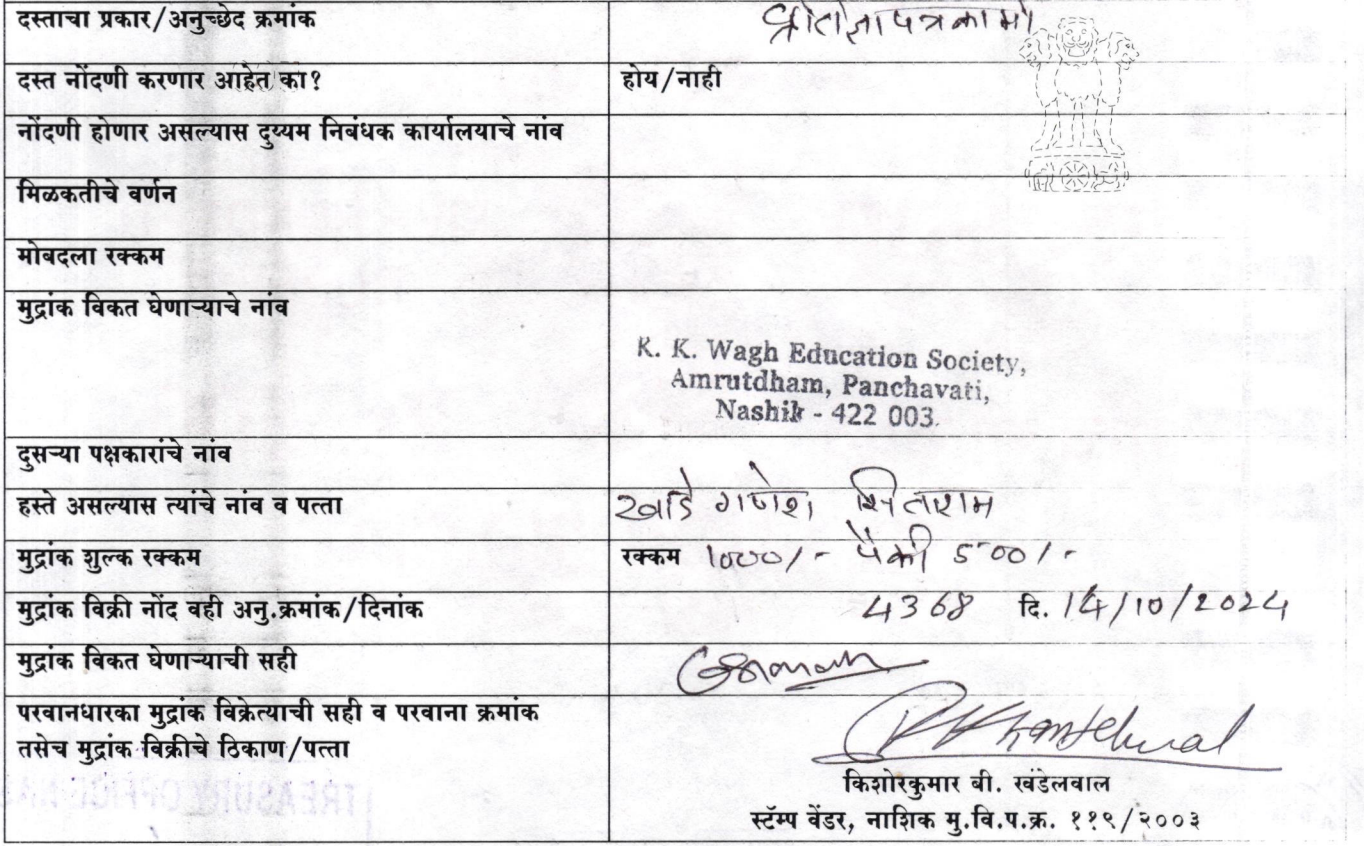 दस्ताचा प्रकार/अनुच्छेद क्रमांक प्रतिज्ञापत्रकामी
दस्त नोंदणी करणार आहेत का? होय/नाही
नोंदणी होणार असल्यास दुय्यम निबंधक कार्यालयाचे नांव
मिळकतीचे वर्णन
मोबदला रक्कम
मुद्रांक विकत घेणाऱ्याचे नांव
K. K. Wagh Education Society,
Amrutdham, Panchavati,
Nashik - 422 003.
दुसऱ्या पक्षकारांचे नांव
हस्ते असल्यास त्यांचे नांव व पत्ता खाडे गणेश सिताराम
मुद्रांक शुल्क रक्कम रक्कम 1000/- पैकी 500/-
मुद्रांक विक्री नोंद वही अनु.क्रमांक/दिनांक 4368 दि. 14/10/2024
मुद्रांक विकत घेणाऱ्याची सही
परवानधारका मुद्रांक विक्रेत्याची सही व परवाना क्रमांक
तसेच मुद्रांक विक्रीचे ठिकाण/पत्ता
किशोरकुमार बी. खंडेलवाल
स्टॅम्प वेंडर, नाशिक मु.वि.प.क्र. ११९/२००३
TREASURY OFFICE